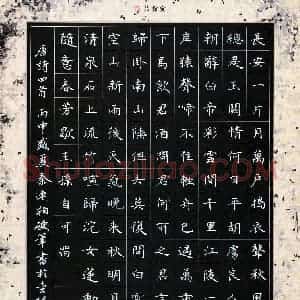 長安一片月萬戶搗衣聲秋風
總是玉關情何日平胡虜良人
朝辭白帝彩雲間千里江陵一
岸猿聲啼不住輕舟已過萬
下馬飲君酒問君何所之君言
歸卧南山陲但去莫復問白雲
空山新雨後天氣晚來秋明月
清泉石上流竹喧歸浣女蓮動
隨意春芳歇王孫自可留
唐詩四首 丙申歲夏